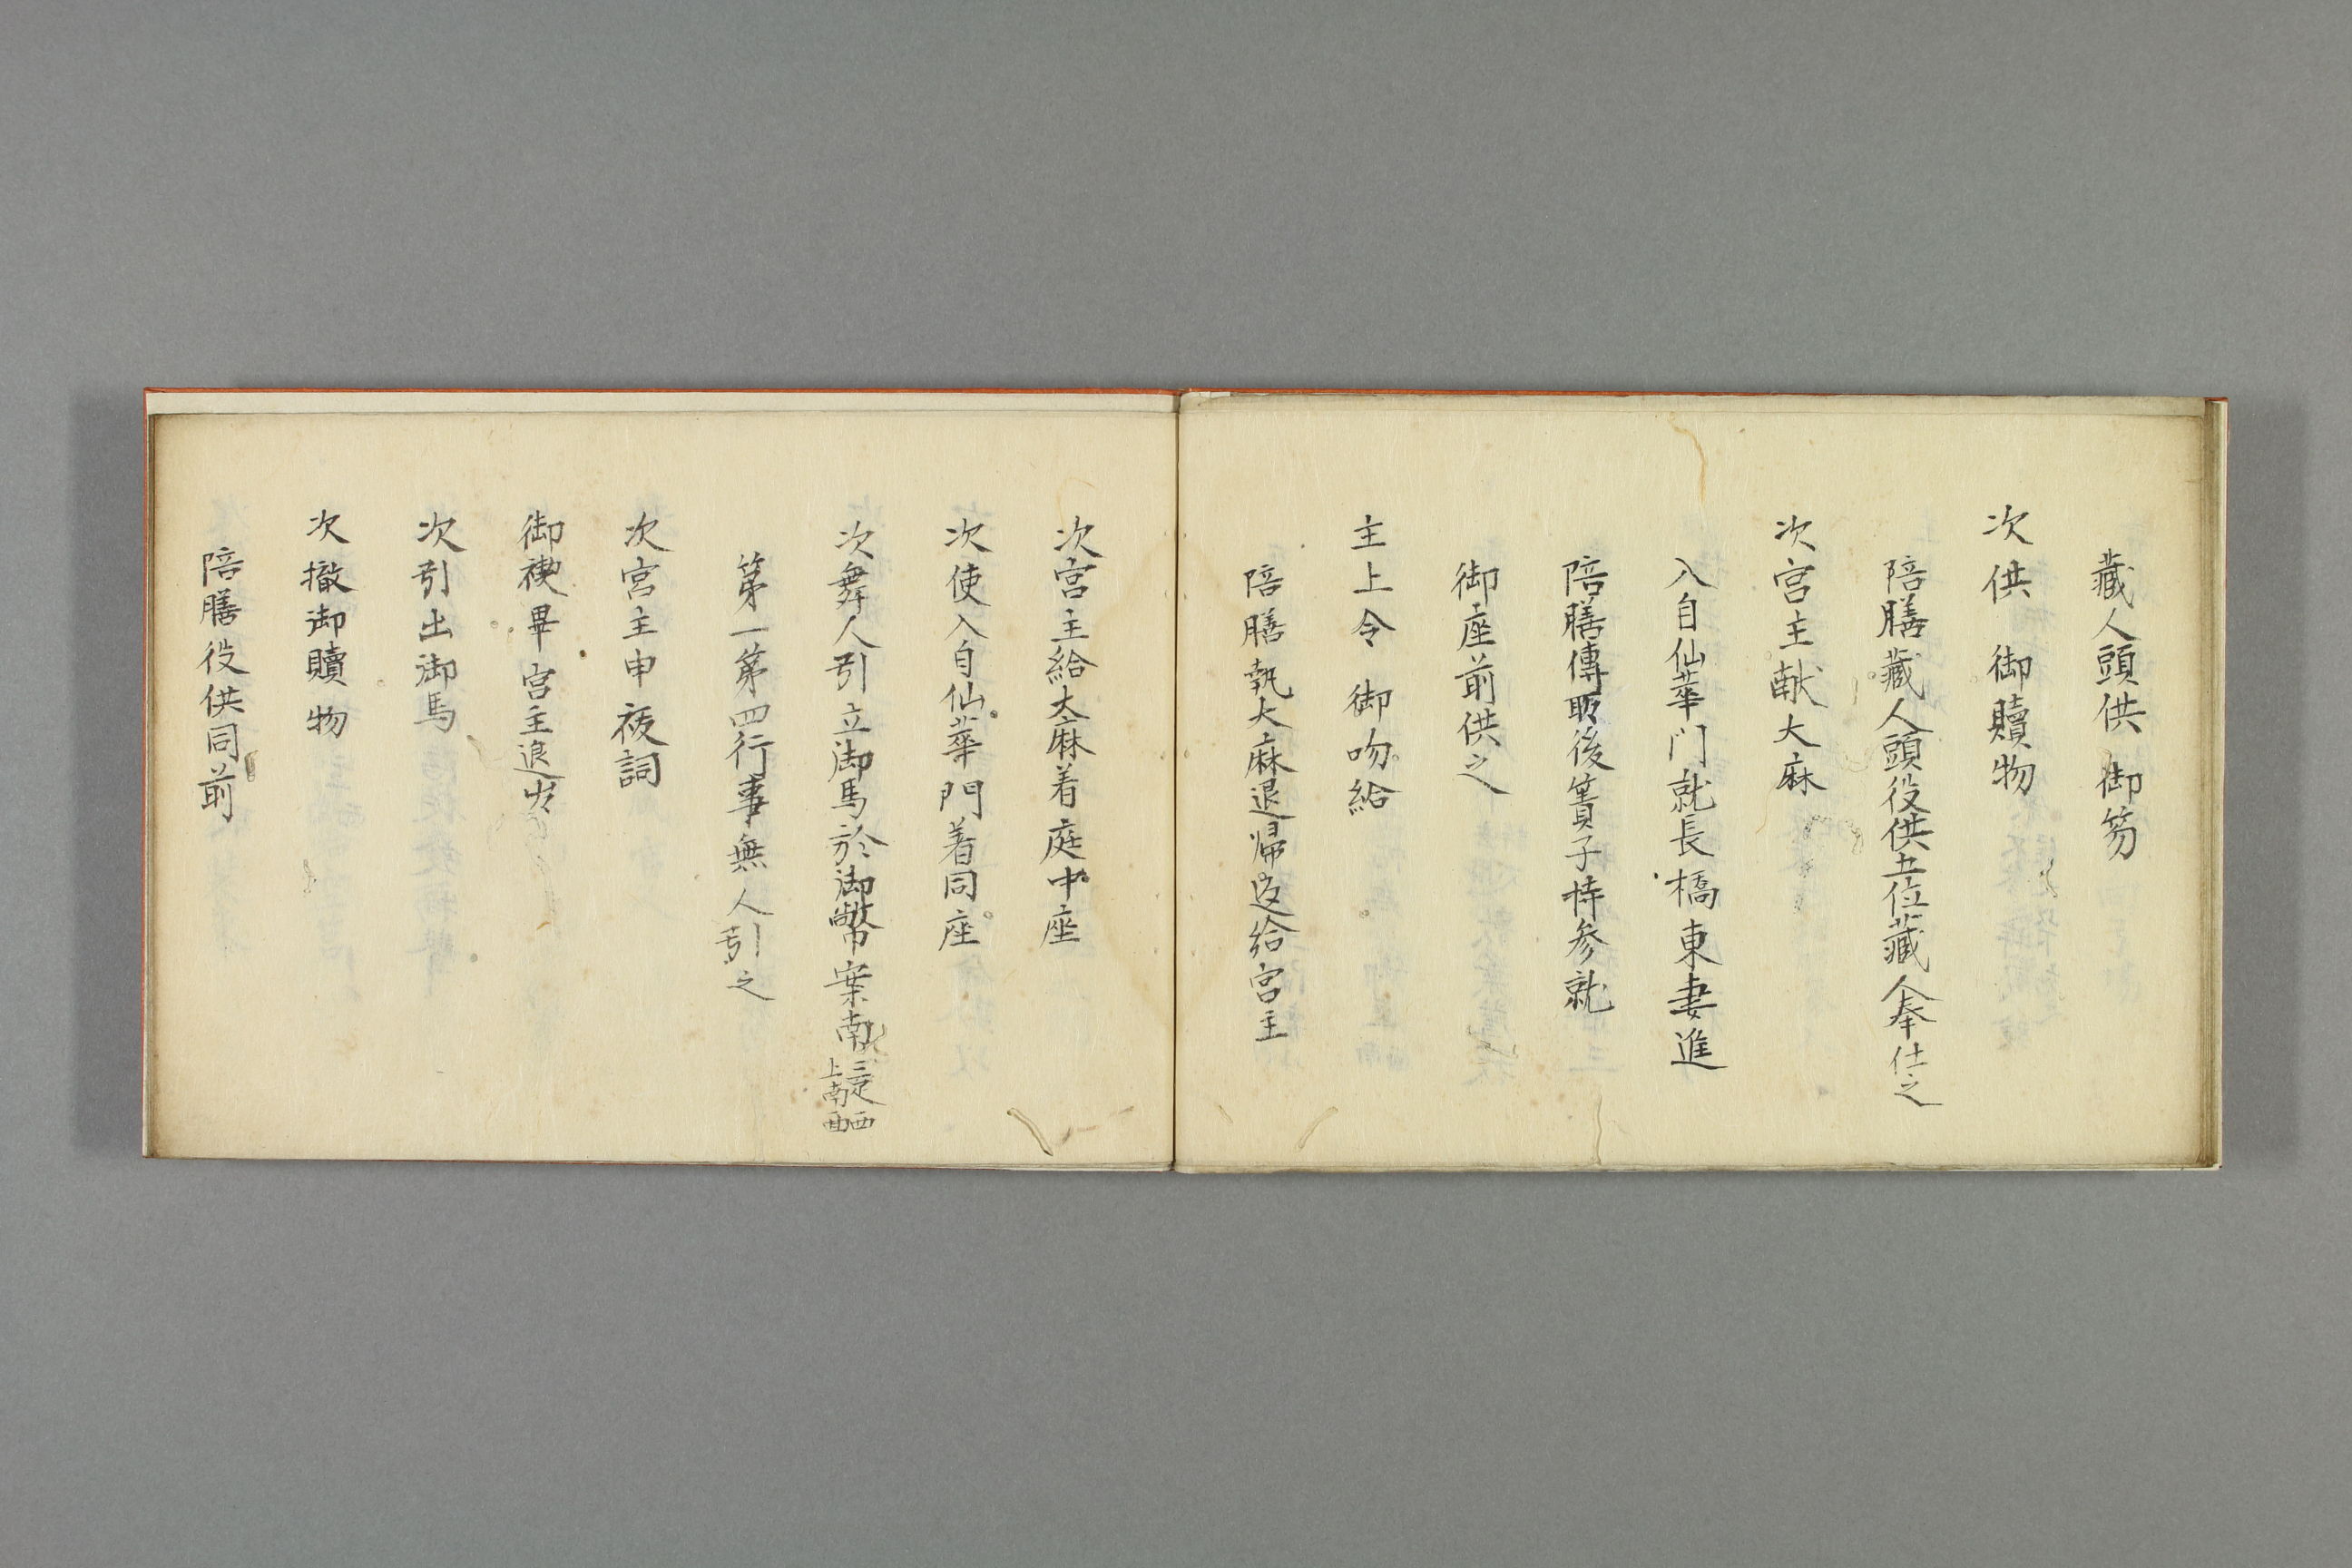 藏人頭供 御笏
次供 御贖物
陪膳藏人頭役供五位藏人奉仕之
次宮主献大麻
入自仙華門就長橋東妻進
陪膳傳取後簀子持参就
御座前供之
主上令 御吻給
陪膳執大麻退帰返給宮主
次宮主給大麻着庭中座
次使入自仙華門着同座
次舞人引立御馬於御幣案南
三疋西
上南面
第一第四行事無人引之
次宮主申祓詞
御禊畢宮主退出
次引出御馬
次撤御贖物
陪膳役供同前